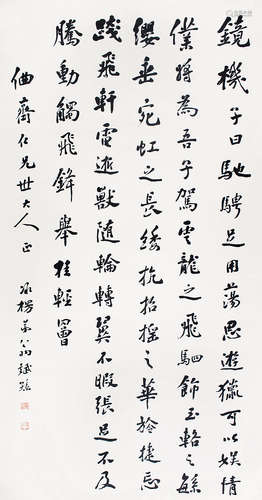 鏡機子曰馳騁足用蕩思遊獵可以娱情
僕將為吾子駕雲龍之飛駟飾玉輅之繁
纓垂宛虹之長緌抗招搖之華旍捷忘
踐飛軒電逝獸隨輪轉翼不暇張足不及
騰動觸飛鋒舉挂輕罾
齋仁兄世大人正
弟翁斌孫